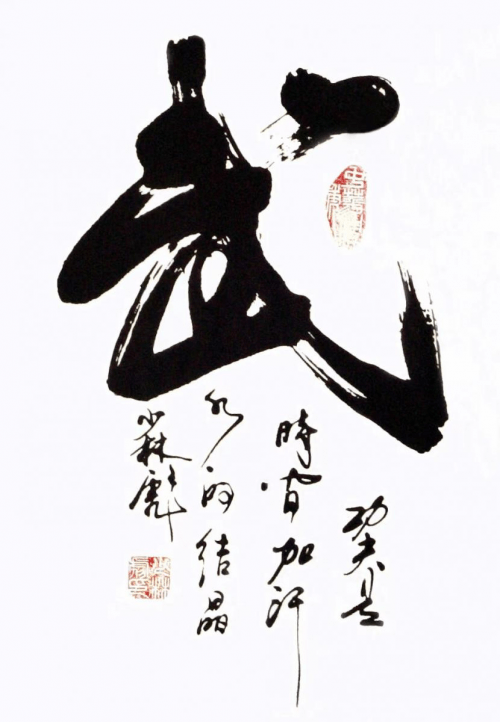 武
功夫是
時間加汗
水的結晶
小林彪